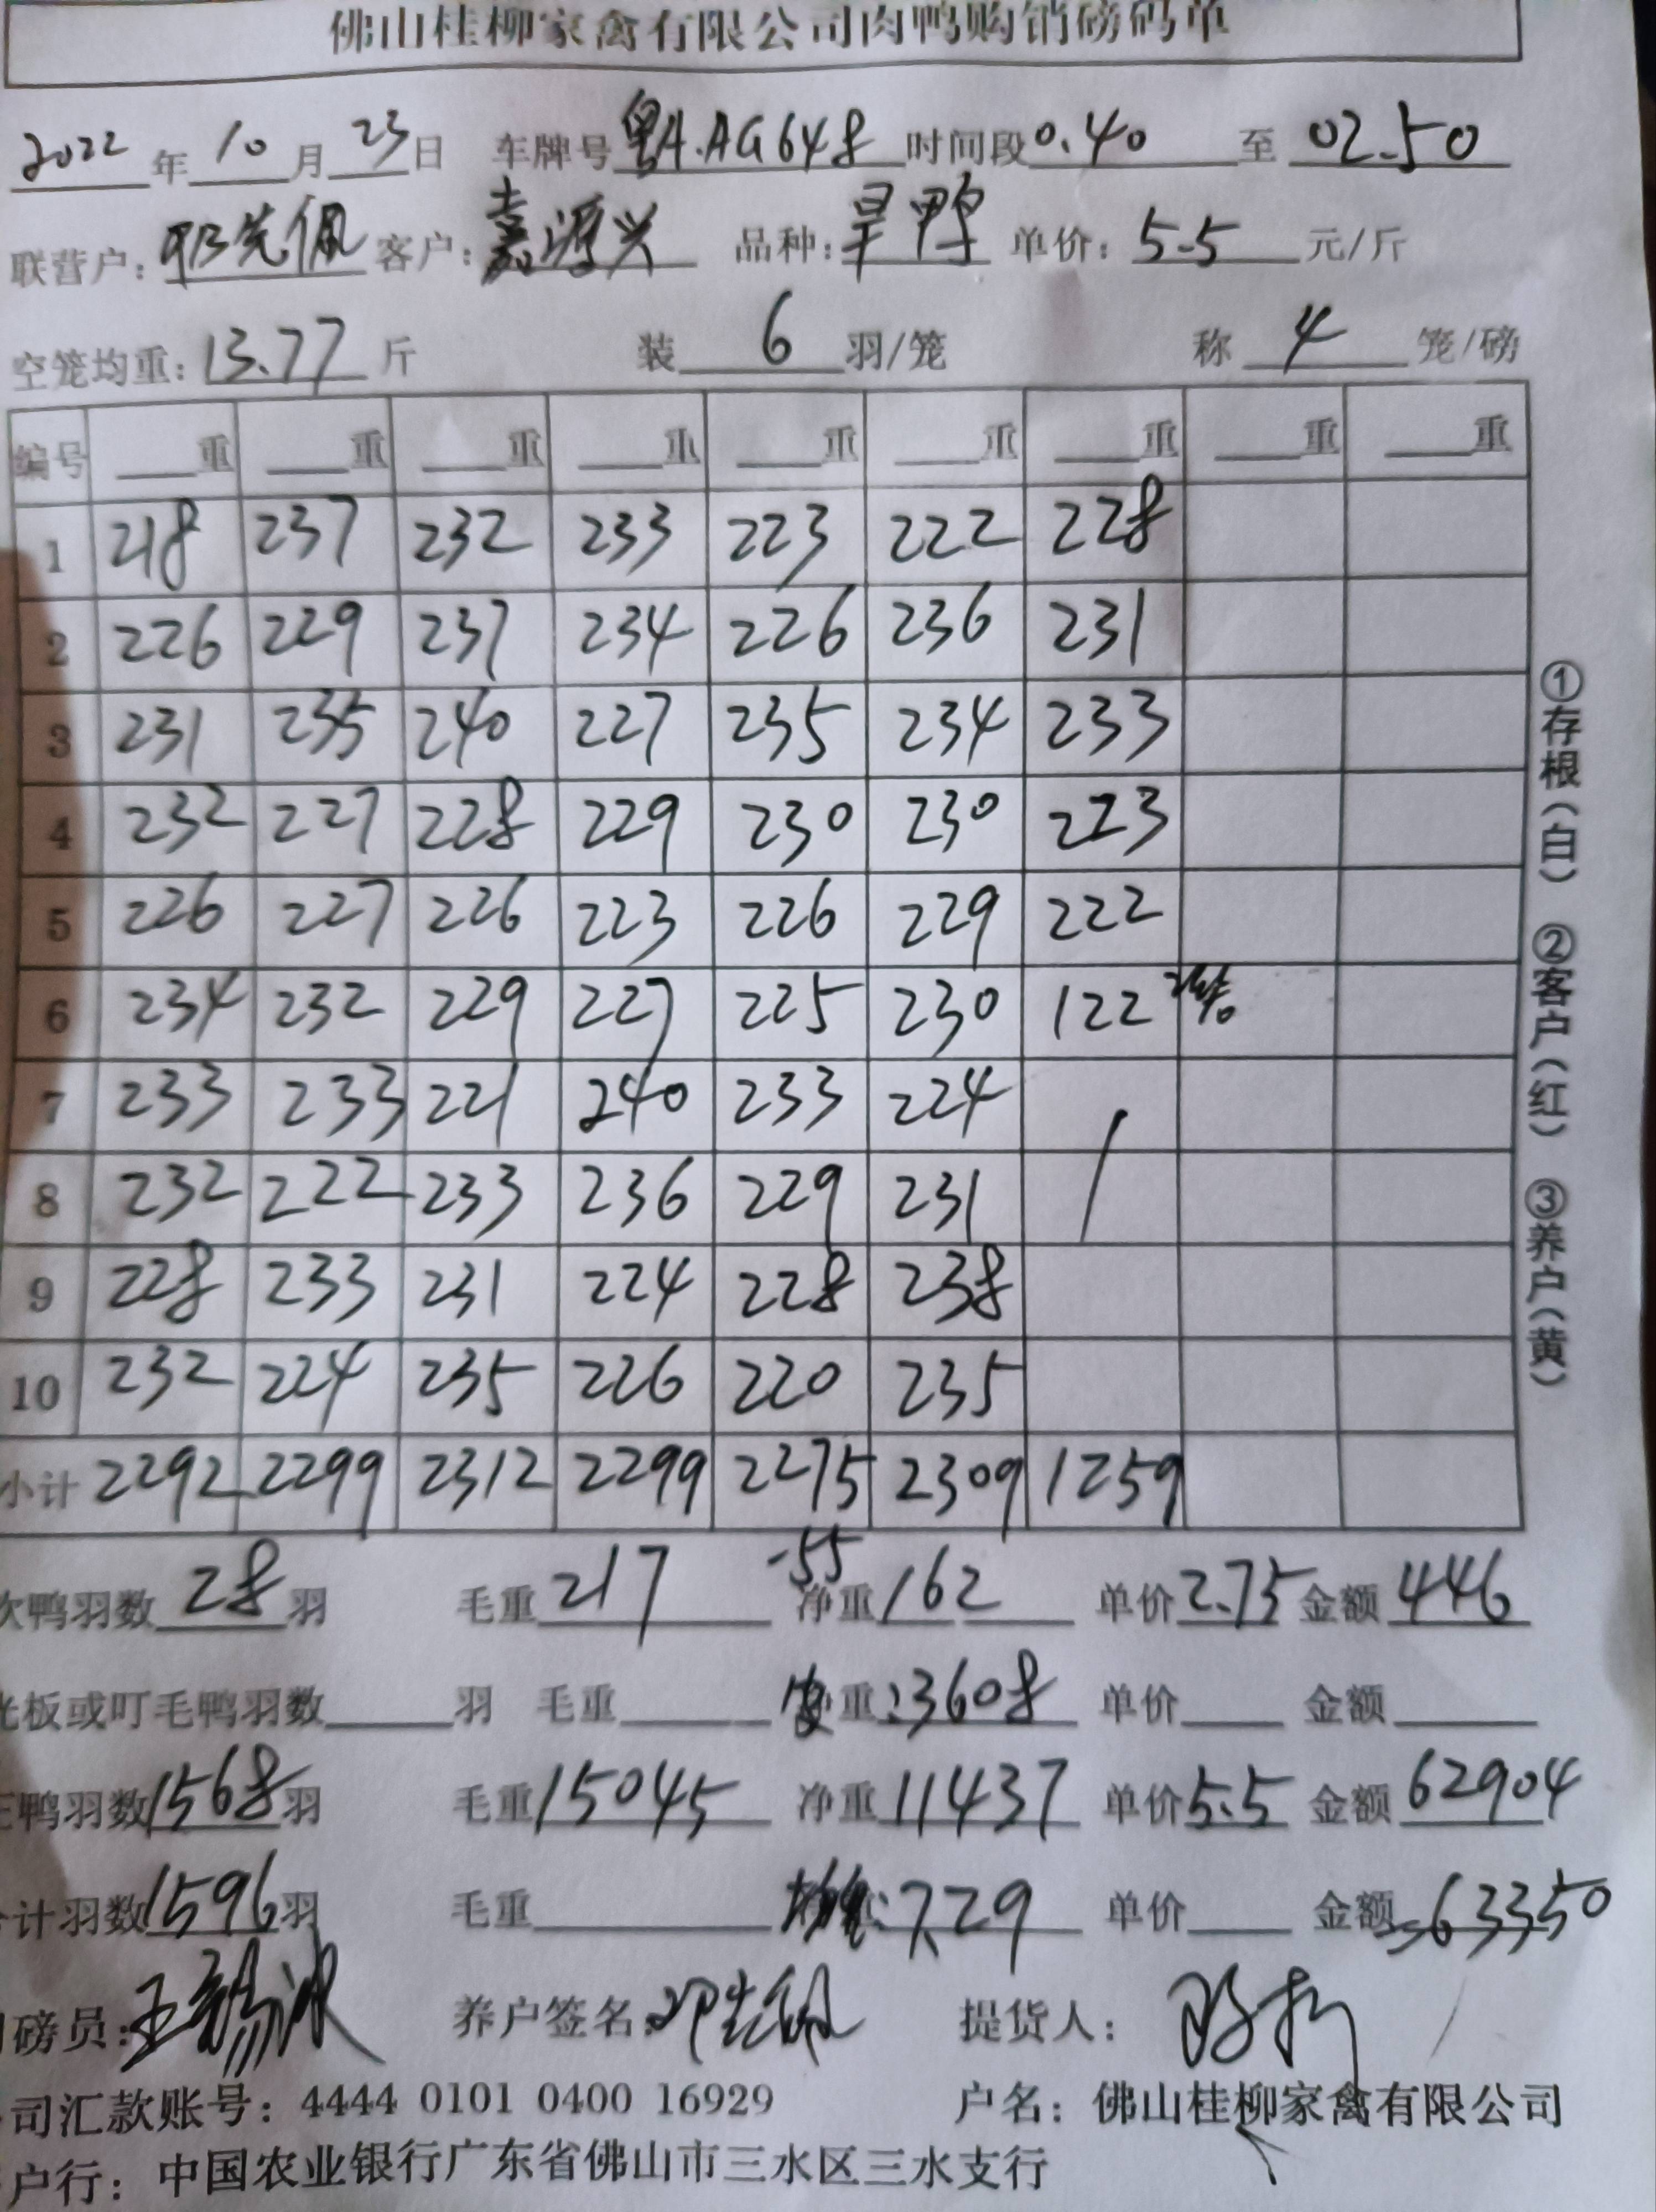 佛山桂柳家禽有限公司肉鸭购销磅码单
2022 年 10 月 23 日 车牌号 粤A.AG648 时间段 0.40 至 02.50
联营户: 客户: 嘉源兴 品种: 旱鸭 单价: 5.5 元/斤
空笼均重: 13.77 斤 装 6 羽/笼 称 4 笼/磅
编号 重 重 重 重 重 重 重 重 重
1 218 237 232 233 223 222 228
2 226 229 237 234 226 236 231
3 231 235 240 227 235 234 233
4 232 227 228 229 230 230 223
5 226 227 226 223 226 229 222
6 234 232 229 227 225 230 122
7 233 233 221 240 233 224
8 232 222 233 236 229 231
9 228 233 231 224 228 238
10 232 224 235 226 220 235
小计 2292 2299 2312 2299 2275 2309 1259
①存根(白) ②客户(红) ③养户(黄)
次鸭羽数 28 羽 毛重 217 -55 净重 162 单价 2.75 金额 446
光板或叮毛鸭羽数 羽 毛重 重:3608 单价 金额
正鸭羽数 1568 羽 毛重 15045 净重 11437 单价 5.5 金额 62904
合计羽数 1596 羽 毛重 7.29 单价 金额 63350
司磅员: 养户签名: 提货人:
司汇款账号: 4444 0101 0400 16929 户名: 佛山桂柳家禽有限公司
户行: 中国农业银行广东省佛山市三水区三水支行